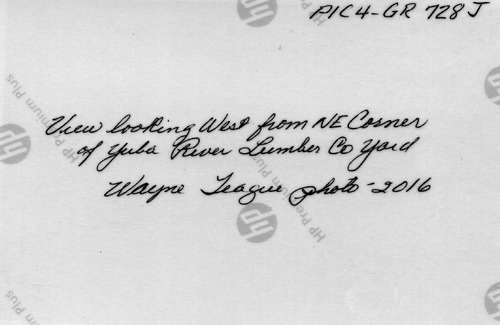 PIC4-GR 728J
View looking West from NE Corner
of Yuba River Lumber Co Yard
Wayne Teague photo - 2016
hp
HP Premium Plus
HP Premium Plus
HP Premium Plus
HP Premium Plus